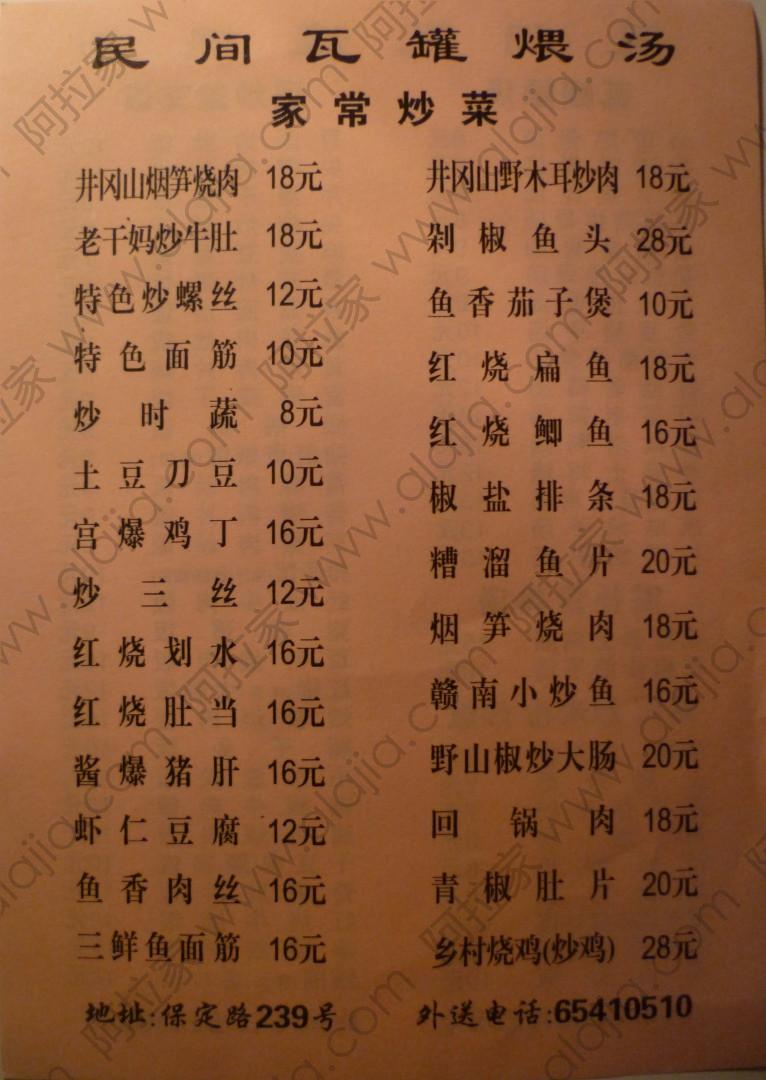 民间瓦罐煨汤
家常炒菜
井冈山烟笋烧肉 18元
老干妈炒牛肚 18元
特色炒螺丝 12元
特色面筋 10元
炒时蔬 8元
土豆刀豆 10元
宫爆鸡丁 16元
炒三丝 12元
红烧划水 16元
红烧肚当 16元
酱爆猪肝 16元
虾仁豆腐 12元
鱼香肉丝 16元
三鲜鱼面筋 16元
井冈山野木耳炒肉 18元
剁椒鱼头 28元
鱼香茄子煲 10元
红烧扁鱼 18元
红烧鲫鱼 16元
椒盐排条 18元
糟溜鱼片 20元
烟笋烧肉 18元
赣南小炒鱼 16元
野山椒炒大肠 20元
回锅肉 18元
青椒肚片 20元
乡村烧鸡(炒鸡) 28元
地址:保定路239号
外送电话:65410510
阿拉家 www.alajia.com